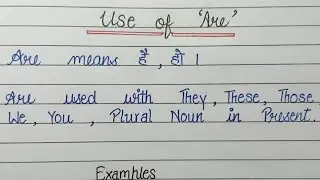 Use of 'Are'
Are means है, हो ।
Are used with They, These, Those
We, You, Plural Noun in Present.
Examples